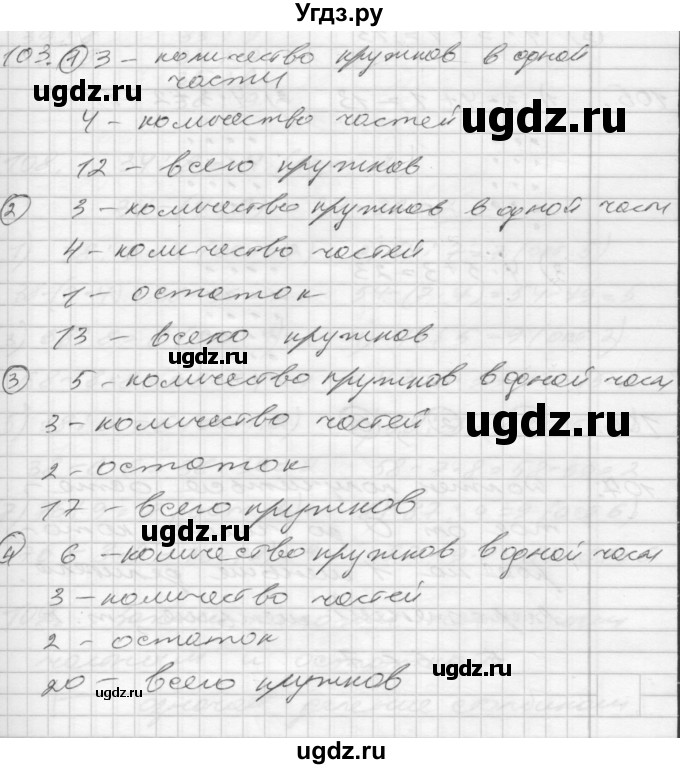 Угдз.ру
103. 1 3 - количество кружков в одной
части
ugdz.ru
4 - количество частей
ugdz.ru
12 - всего кружков
2 3 - количество кружков в одной части
4 - количество частей
1 - остаток
13 - всего кружков
ugdz.ru
3 5 - количество кружков в одной части
3 - количество частей
ugdz.ru
2 - остаток
17 - всего кружков
ugdz.ru
4 6 - количество кружков в одной части
3 - количество частей
2 - остаток
ugdz.ru
20 - всего кружков
ugdz.ru
ugdz.ru